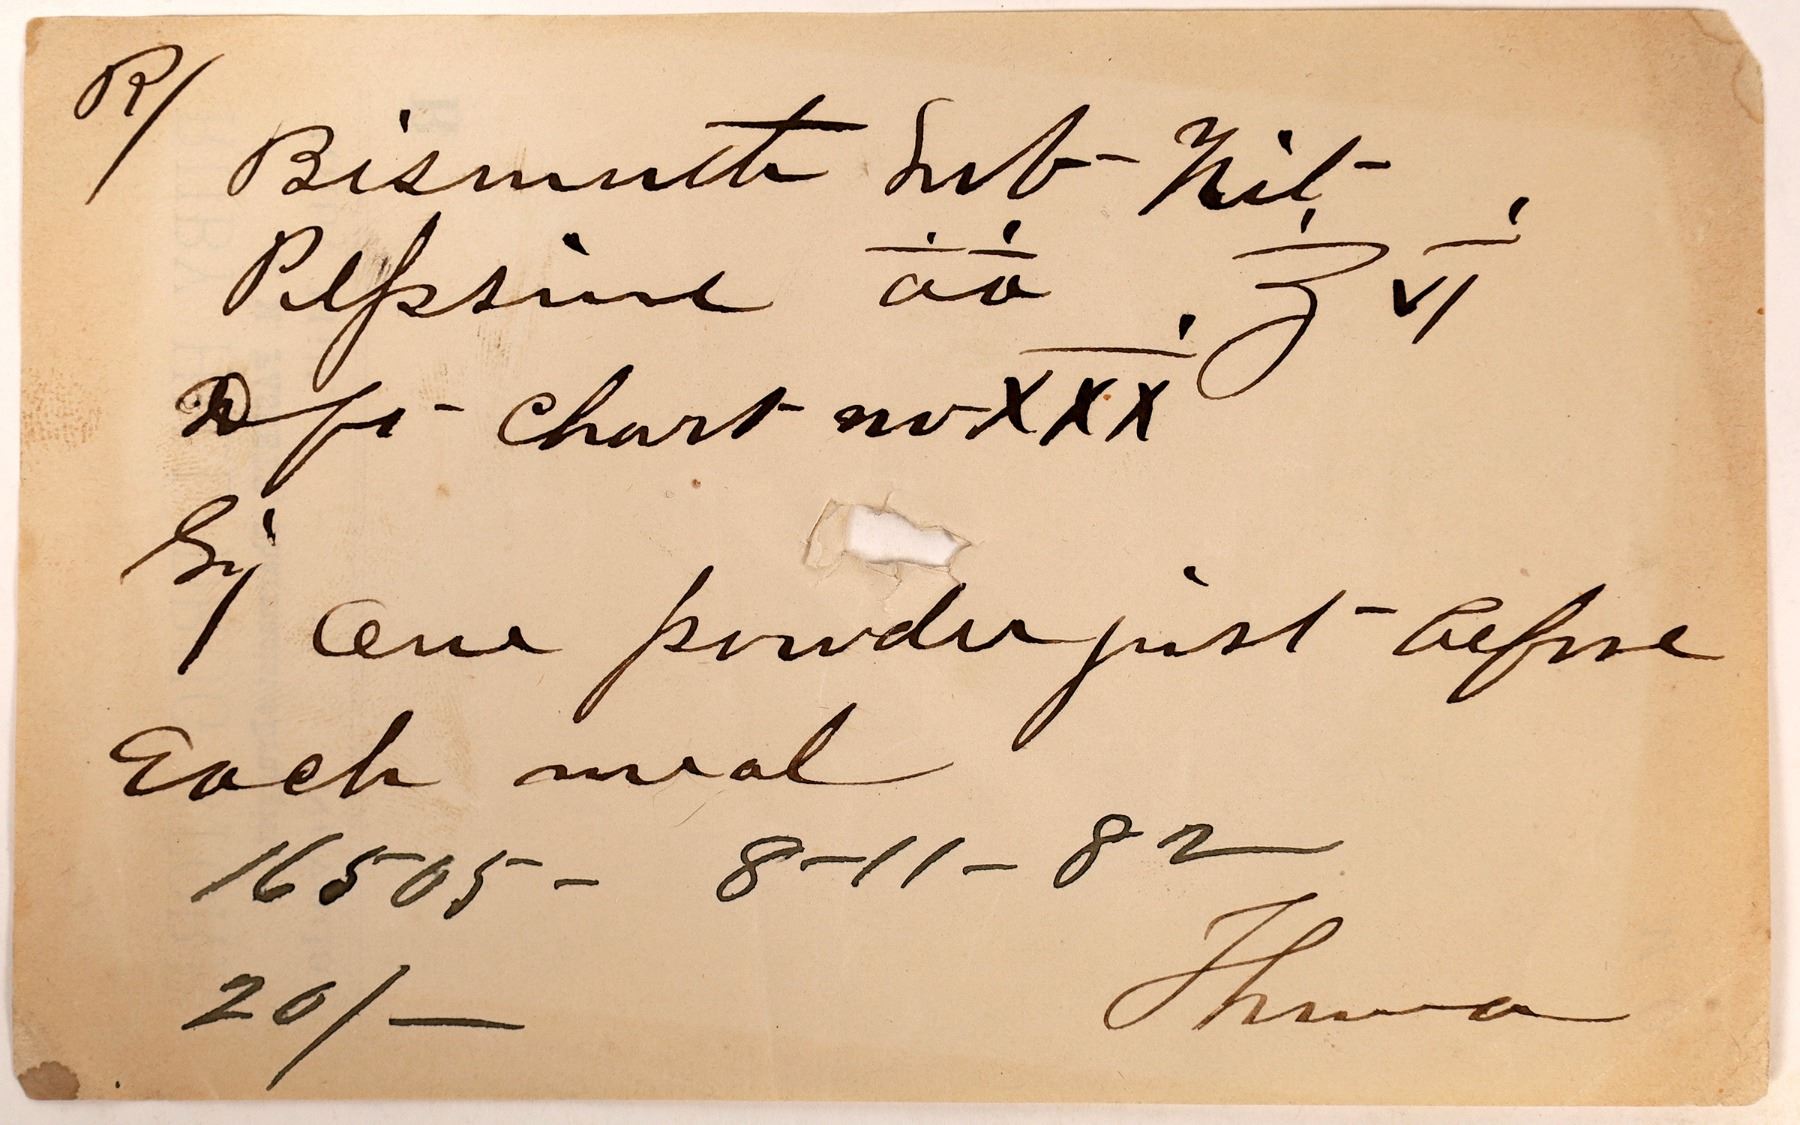 R/
Bismuth Sub-Nit-
Pepsine āā ʒ vi
D ft- chart no XXX
Sig
One powder just before
Each meal
16505- 8-11-82
20/-